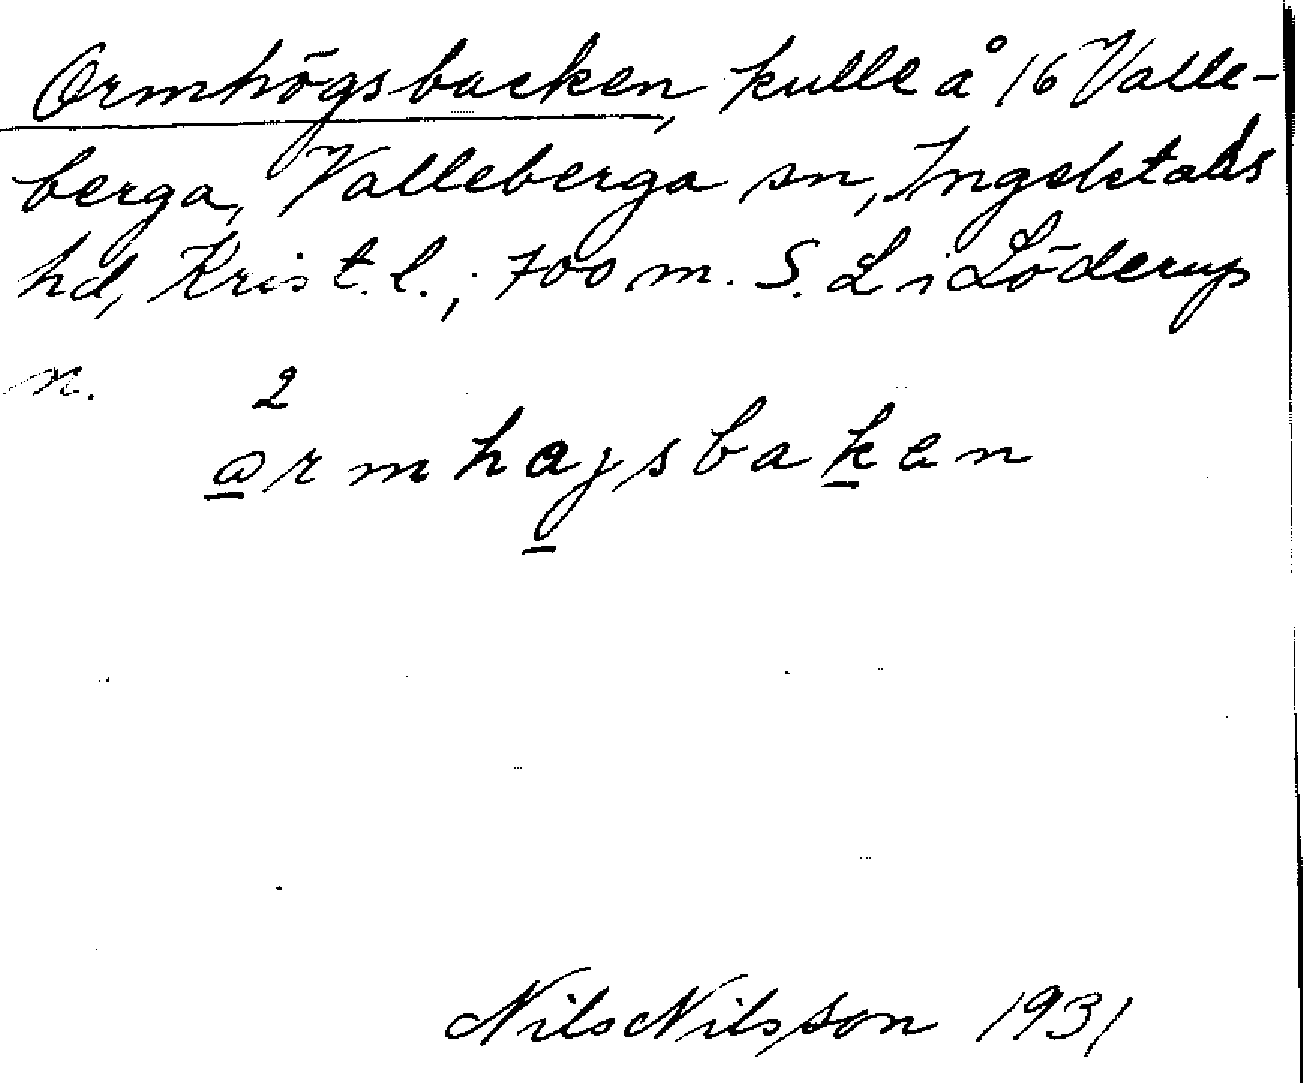 Ormhögsbacken, kulle å 16 Valle-
berga, Valleberga sn, Ingelstads
hd, Krist. l.; 700 m. S. L i Löderup
n.
2
armhajsbaken
Nils Nilsson 1931